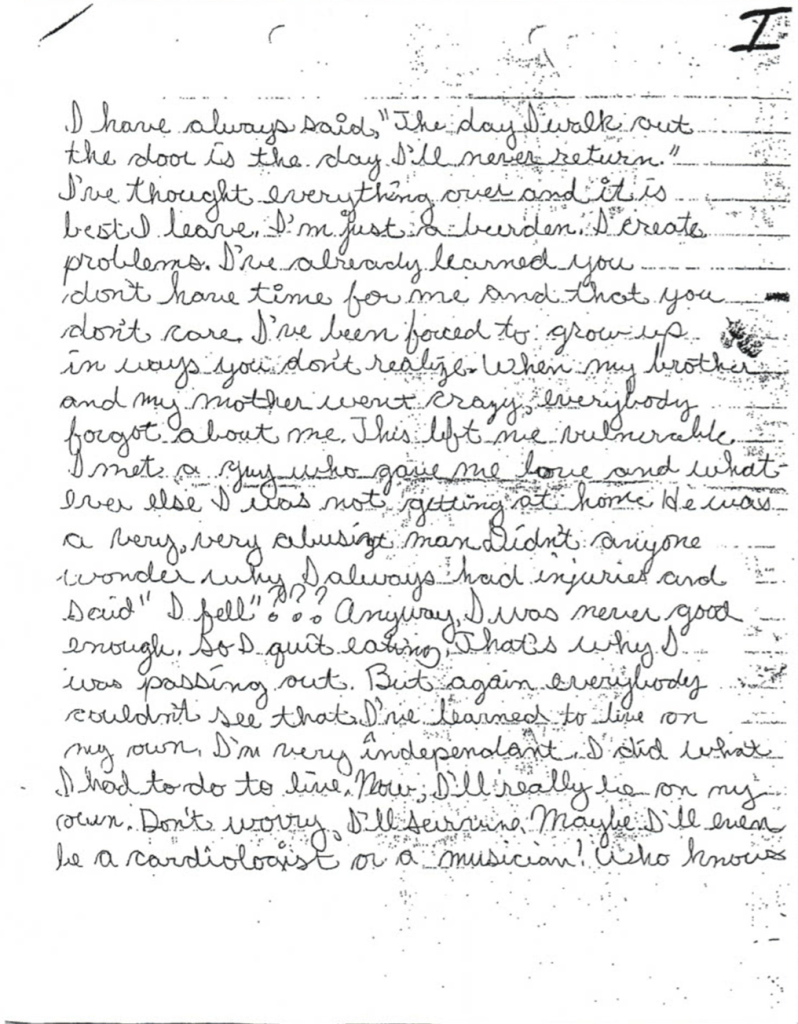 I
I have always said, "The day I walk out
the door is the day I'll never return."
I've thought everything over and it is
best I leave. I'm just a burden. I create
problems. I've already learned you
don't have time for me and that you
don't care. I've been forced to grow up
in ways you don't realize. When my brother
and my mother went crazy, everybody
forgot about me. This left me vulnerable.
I met a guy who gave me love and what
ever else I was not getting at home He was
a very, very abusive man Didn't anyone
wonder why I always had injuries and
said "I fell"??? Anyway, I was never good
enough. So I quit eating. That's why I
was passing out. But again everybody
couldn't see that. I've learned to live on
my own. I'm very independant. I did what
I had to do to live. Now, I'll really be on my
own. Don't worry, I'll survive. Maybe I'll even
be a cardiologist or a musician! Who knows